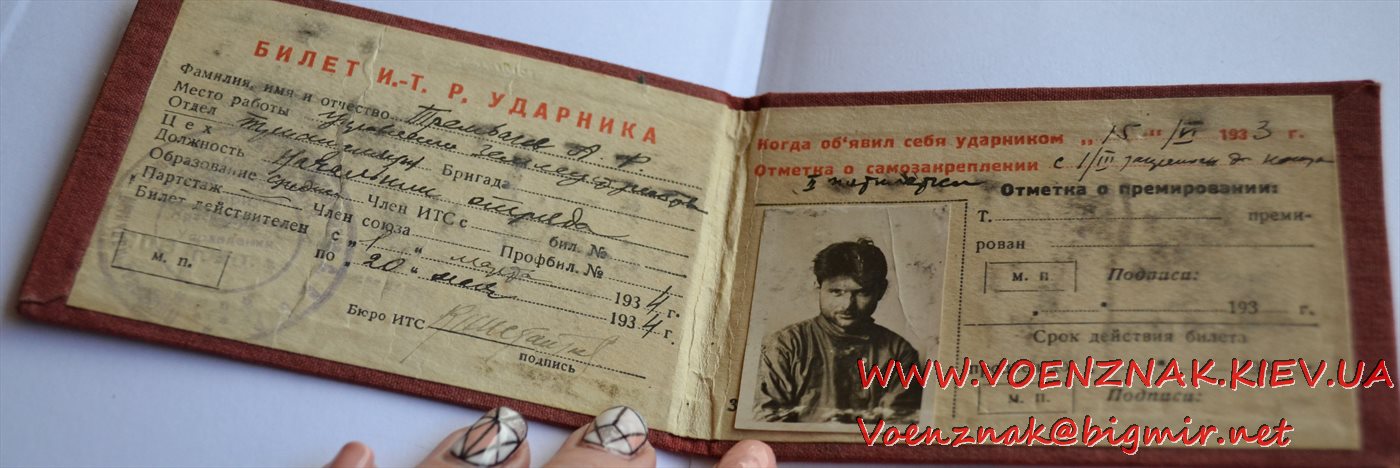 БИЛЕТ И.-Т. Р. УДАРНИКА
Фамилия, имя и отчество А. Ф.
Место работы Управление
Отдел
Цех Бригада
Должность Начальник отряда
Образование среднее Член ИТС с бил. №
Партстаж — Член союза Профбил. №
Билет действителен с „1“ марта 1934 г.
по „20“ мая 1934 г.
м. п.
Бюро ИТС
подпись
Когда об‘явил себя ударником „15“ VI 1933 г.
Отметка о самозакреплении с 1/III до конца
II пятилетки
Отметка о премировании:
Т. преми-
рован
м. п. Подписи:
193 г.
Срок действия билета
м. п. Подписи:
WWW.VOENZNAK.KIEV.UA
Voenznak@bigmir.net